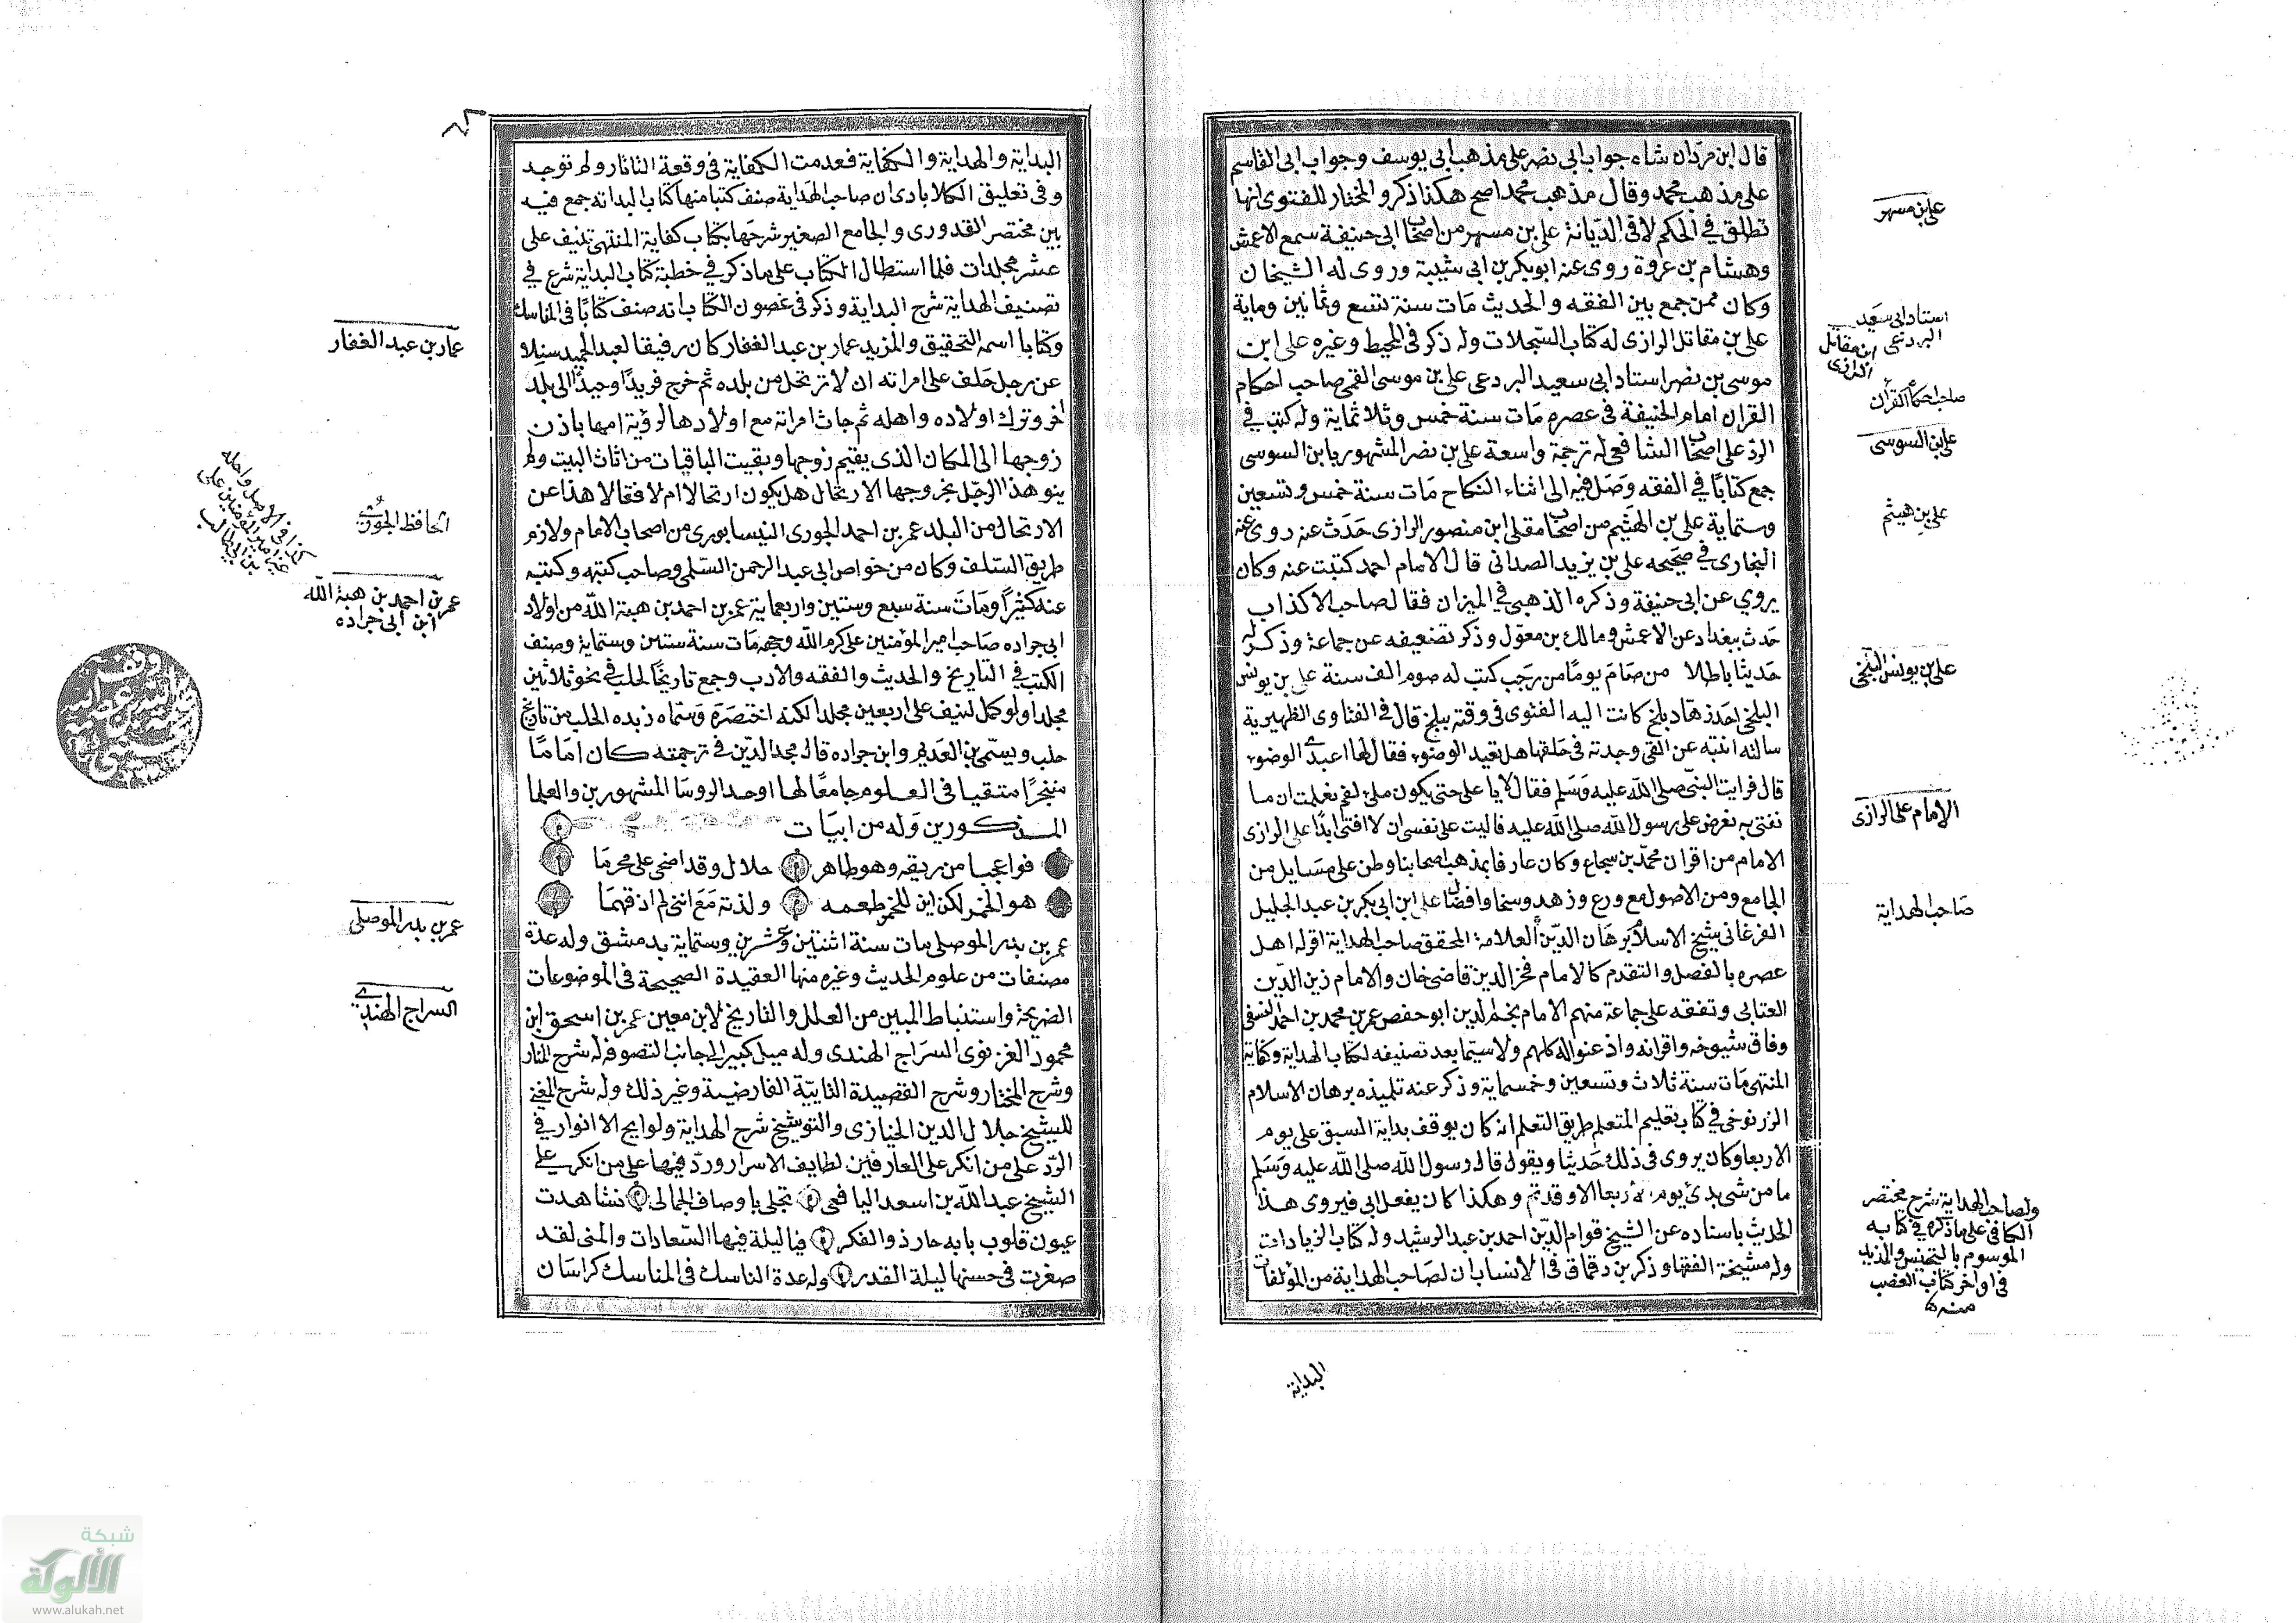 قال ابن مردان شاه جواب ابى نصر على مذهب ابى يوسف وجواب ابى القاسم
على مذهب محمد وقال مذهب محمد اصح هكذا ذكر والمختار للفتوى انها
تطلق فى الحكم لا فى الديانة على بن مسهر من اصحاب ابى حنيفة سمع الاعمش
وهشام بن عروة روى عنه ابو بكر بن ابى شيبة وروى له الشيخان
وكان ممن جمع بين الفقه والحديث مات سنة تسع وثمانين وماية
على بن مقاتل الرازى له كتاب السجلات وله ذكر فى المحيط وغيره على ابن
موسى بن نصر استاد ابى سعيد البردعى على بن موسى القمى صاحب احكام
القران امام الحنيفة فى عصره مات سنة خمس وثلاثماية وله كتب فى
الرد على اصحاب الشافعى له ترجمة واسعة على بن نصر المشهور يا بن السوسى
جمع كتابا فى الفقه وصل فيه الى اثناء النكاح مات سنة خمس وتسعين
وستماية على بن الهيثم من اصحاب معلى ابن منصور الرازى حدث عنه روى عنه
البخارى فى صحيحه على بن يزيد الصدانى قال الامام احمد كتبت عنه وكان
يروى عن ابى حنيفة وذكره الذهبى فى الميزان فقال صاحب الاكذاب
حدث ببغداد عن الاعمش ومالك بن معول وذكر تضعيفه عن جماعة وذكر له
حديثا باطلا من صام يوما من رجب كتب له صوم الف سنة على بن يونس
البلخى احد زهاد بلخ كانت اليه الفتوى فى وقته ببلخ قال فى الفتاوى الظهيرية
سالته ابنته عن القى وجدته فى حلقها هل يعيد الوضوء فقال لها اعيدى الوضوء
قال فرايت النبى صلى الله عليه وسلم فقال لا يا على حتى يكون ملئ الفم فعلمت ان ما
نفتى به يعرض على رسول الله صلى الله عليه فاليت على نفسى ان لا افتى ابدا على الرازى
الامام من اقران محمد بن سجاع وكان عارفا بمذهب اصحابنا وطن على مسايل من
الجامع ومن الاصول مع ورع وزهد وسخا وافضال على ابن ابى بكر بن عبد الجليل
الفرغانى شيخ الاسلام برهان الدين العلامة المحقق صاحب الهداية اقر له اهل
عصره بالفضل والتقدم كالامام فخر الدين قاضى خان والامام زين الدين
العتابى وتفقه على جماعة منهم الامام نجم الدين ابو حفص عمر بن محمد بن احمد النسفى
وفاق شيوخه واقرانه واذعنوا له كلهم ولا سيما بعد تصنيفه لكتاب الهداية وكفاية
المنتهى مات سنة ثلاث وتسعين وخمسماية وذكر عنه تلميذه برهان الاسلام
الزرنوخى فى كتاب تعليم المتعلم طريق التعلم انه كان يوقف بداية السبق على يوم
الاربعا وكان يروى فى ذلك حديثا ويقول قال رسول الله صلى الله عليه وسلم
ما من شى بدئ يوم الاربعا الا وقد تم وهكذا كان يفعل ابى فيروى هذا
الحديث باسناده عن الشيخ قوام الدين احمد بن عبد الرشيد وله كتاب الزيادات
وله مشيخة الفقها وذكر بن دقماق فى الانساب ان لصاحب الهداية من المؤلفات
على بن مسهر
استاد ابى سعيد
البردعى
ابن مقاتل
الرازى
صاحب احكام القران
على بن السوسى
على بن هيثم
على بن يونس البلخى
الامام على الرازى
صاحب الهداية
ولصاحب الهداية شرح مختصر
الكافى على ما ذكره فى كتابه
الموسوم بالتجنيس والمزيد
فى اواخر كتاب الغصب
منه
البداية
البداية والهداية والكفاية فعدمت الكفاية فى وقعة التاتار ولم توجد
وفى تعليق الكلابادى ان صاحب الهداية صنف كتبا منها كتاب البداية جمع فيه
بين مختصر القدورى والجامع الصغير شرحها بكتاب كفاية المنتهى تنيف على
عشر مجلدات فلما استطال الكتاب على ما ذكر فى خطبة كتاب البداية شرع فى
تصنيف الهداية شرح البداية وذكر فى غصون الكتاب انه صنف كتابا فى المناسك
وكتابا اسمه التحقيق والمزيد عمار بن عبد الغفار كان رفيقا لعبد المجيد سئلا
عن رجل حلف على امراته ان لا ترتحل من بلده ثم خرج فريدا وحيدا الى بلد
اخر وترك اولاده واهله ثم جات امراته مع اولادها لرؤية امها باذن
زوجها الى المكان الذى يقيم زوجها وبقيت الباقيات من اثاث البيت ولم
ينو هذا الرجل بخروجها الارتحال هل يكون ارتحالا ام لا فقالا هذا عن
الارتحال من البلد عمر بن احمد الجورى النيسابورى من اصحاب الامام ولازم
طريق السلف وكان من خواص ابى عبد الرحمن السلمى وصاحب كتبه وكتبه
عنه كثيرا ومات سنة سبع وستين واربعماية عمر بن احمد بن هبة الله من اولاد
ابى جراده صاحب امير المؤمنين على كرم الله وجهه مات سنة ستين وستماية وصنف
الكتب فى التاريخ والحديث والفقه والادب وجمع تاريخا لحلب فى نحو ثلاثين
مجلدا ولو كمل لنيف على اربعين مجلدا لكنه اختصره وسماه زبده الحلب من تاريخ
حلب ويسمى بن العديم وابن جراده قال مجد الدين فى ترجمته كان اماما
متبحرا متقيا فى العلوم جامعا لها اوحد الروسا المشهورين والعلما
المذكورين وله من ابيات
فواعجبا من ريقه وهو طاهر حلال وقد اضحى على محرما
هو الخمر لكن اين للخمر طعمه ولذته مع اننى لم اذقهما
عمر بن بدر الموصلى مات سنة اثنتين وعشرين وستماية بدمشق وله عدة
مصنفات من علوم الحديث وغيره منها العقيدة الصحيحة فى الموضوعات
الصريحة واستنباط المبين من العلل والتاريخ لابن معين عمر بن اسحق ابن
محمود الغزنوى السراج الهندى وله ميل كبير الى جانب التصوف له شرح المنار
وشرح المختار وشرح القصيدة التاييّة الفارضية وغير ذلك وله شرح المغنى
للشيخ جلال الدين الخبازى والتوشيخ شرح الهداية ولوايح الانوار فى
الرد على من انكر على العارفين لطايف الاسرار ورد فيها على من انكر على
الشيخ عبد الله بن اسعد اليافعى تجلى يا وصاف الجمالى نشاهدت
عيون قلوب بابه حار ذو الفكر فيا ليلة فيها السعادات والمنى لقد
صغرت فى حسنها ليلة القدر وله عدة الناسك فى المناسك كراسان
عمار بن عبد الغفار
الحافظ الجورى
كذا فى الاصل واصله
امير المؤمنين على
بن ابى طالب
عمر بن احمد بن هبة الله
ابن ابى جراده
عمر بن بدر الموصلى
السراج الهندى
شبكة
الألوكة
www.alukah.net